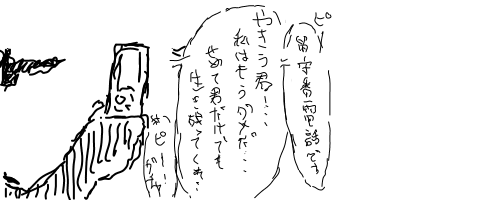 ピ
留守番電話です
やきう君!・・・
私はもうダメだ・・・
せめて君だけでも
生き残ってくれ・
ピー!
ガチャ